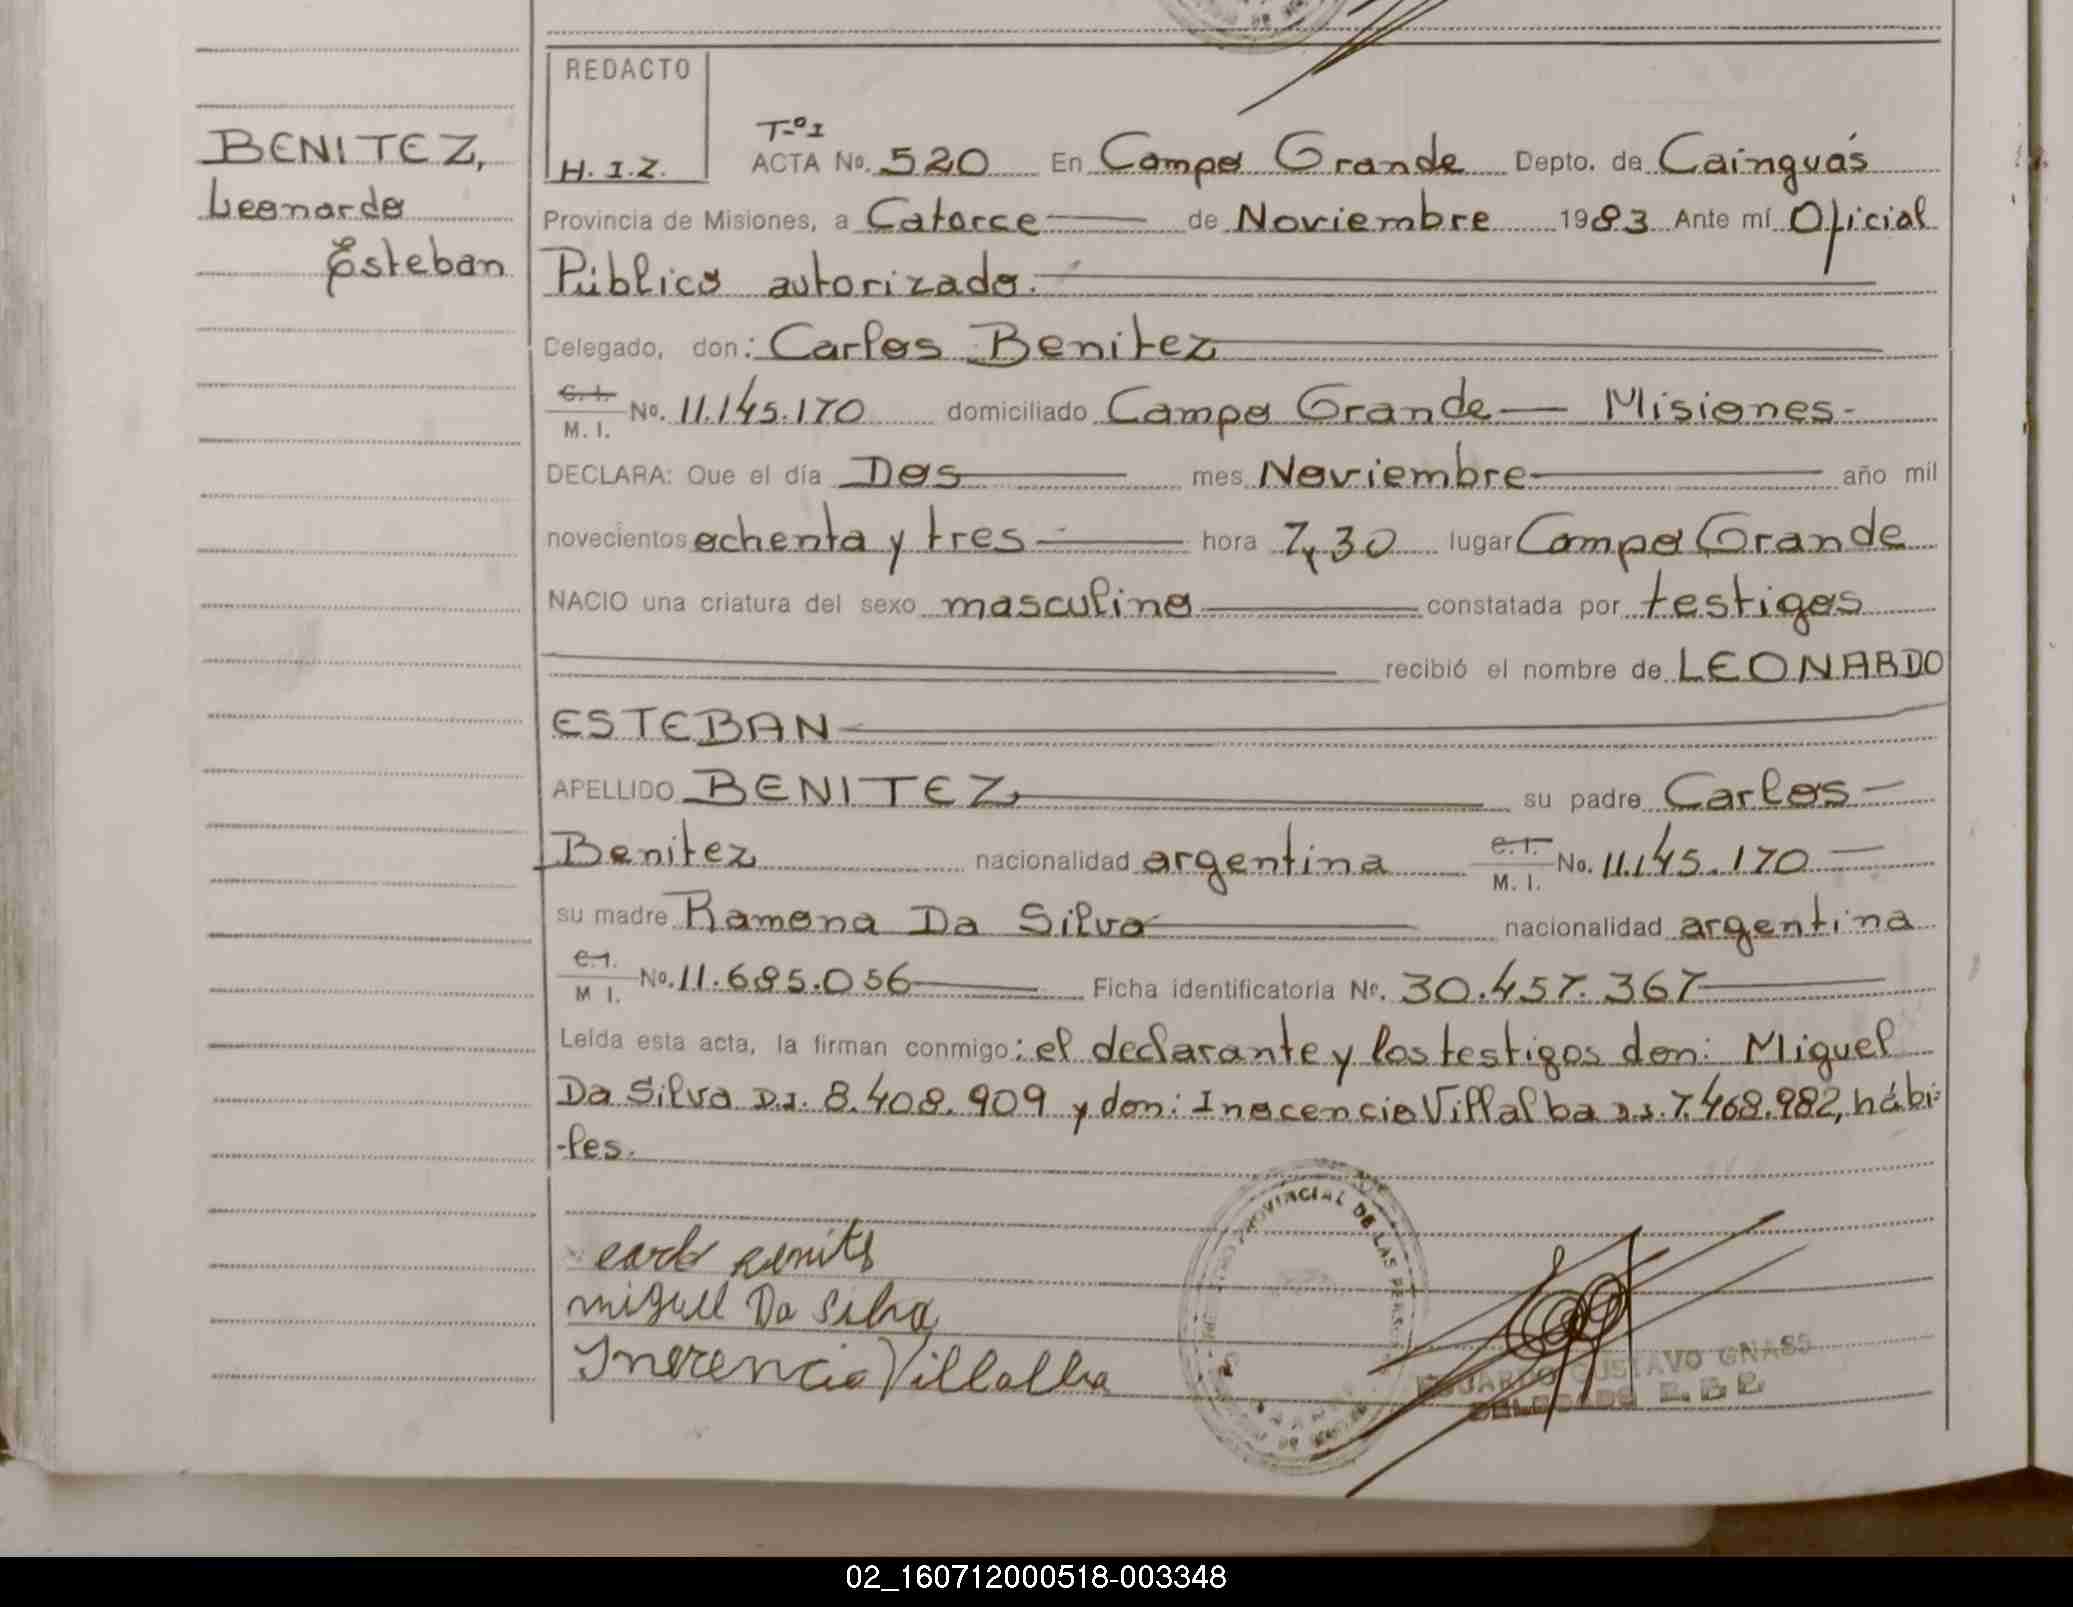 BENITEZ,
Leonardo
Esteban
REDACTO
H.I.Z.
Tº1
ACTA No. 520 En Campo Grande Depto. de Cainguás
Provincia de Misiones, a Catorce de Noviembre 1983 Ante mí Oficial
Público autorizado.
Delegado, don: Carlos Benitez
C.I. M. I. No. 11.145.170 domiciliado Campo Grande — Misiones.-
DECLARA: Que el día Dos mes Noviembre año mil
novecientos ochenta y tres hora 7,30 lugar Campo Grande
NACIO una criatura del sexo masculino constatada por testigos
recibió el nombre de LEONARDO
ESTEBAN
APELLIDO BENITEZ su padre Carlos
Benitez nacionalidad argentina C.I. M. I. No. 11.145.170
su madre Ramona Da Silva nacionalidad argentina
C.I. M I. No. 11.685.056 Ficha identificatoria Nº. 30.457.367
Leída esta acta, la firman conmigo: el declarante y los testigos don: Miguel
Da Silva D.I. 8.408.909 y don: Inocencio Villalba D.I. 7.468.982, hábi-
-les.
miguel Da Silva
Inocencio Villalba
PROVINCIAL DE LAS
EDUARDO GUSTAVO GNASS
DELEGADO
02_160712000518-003348